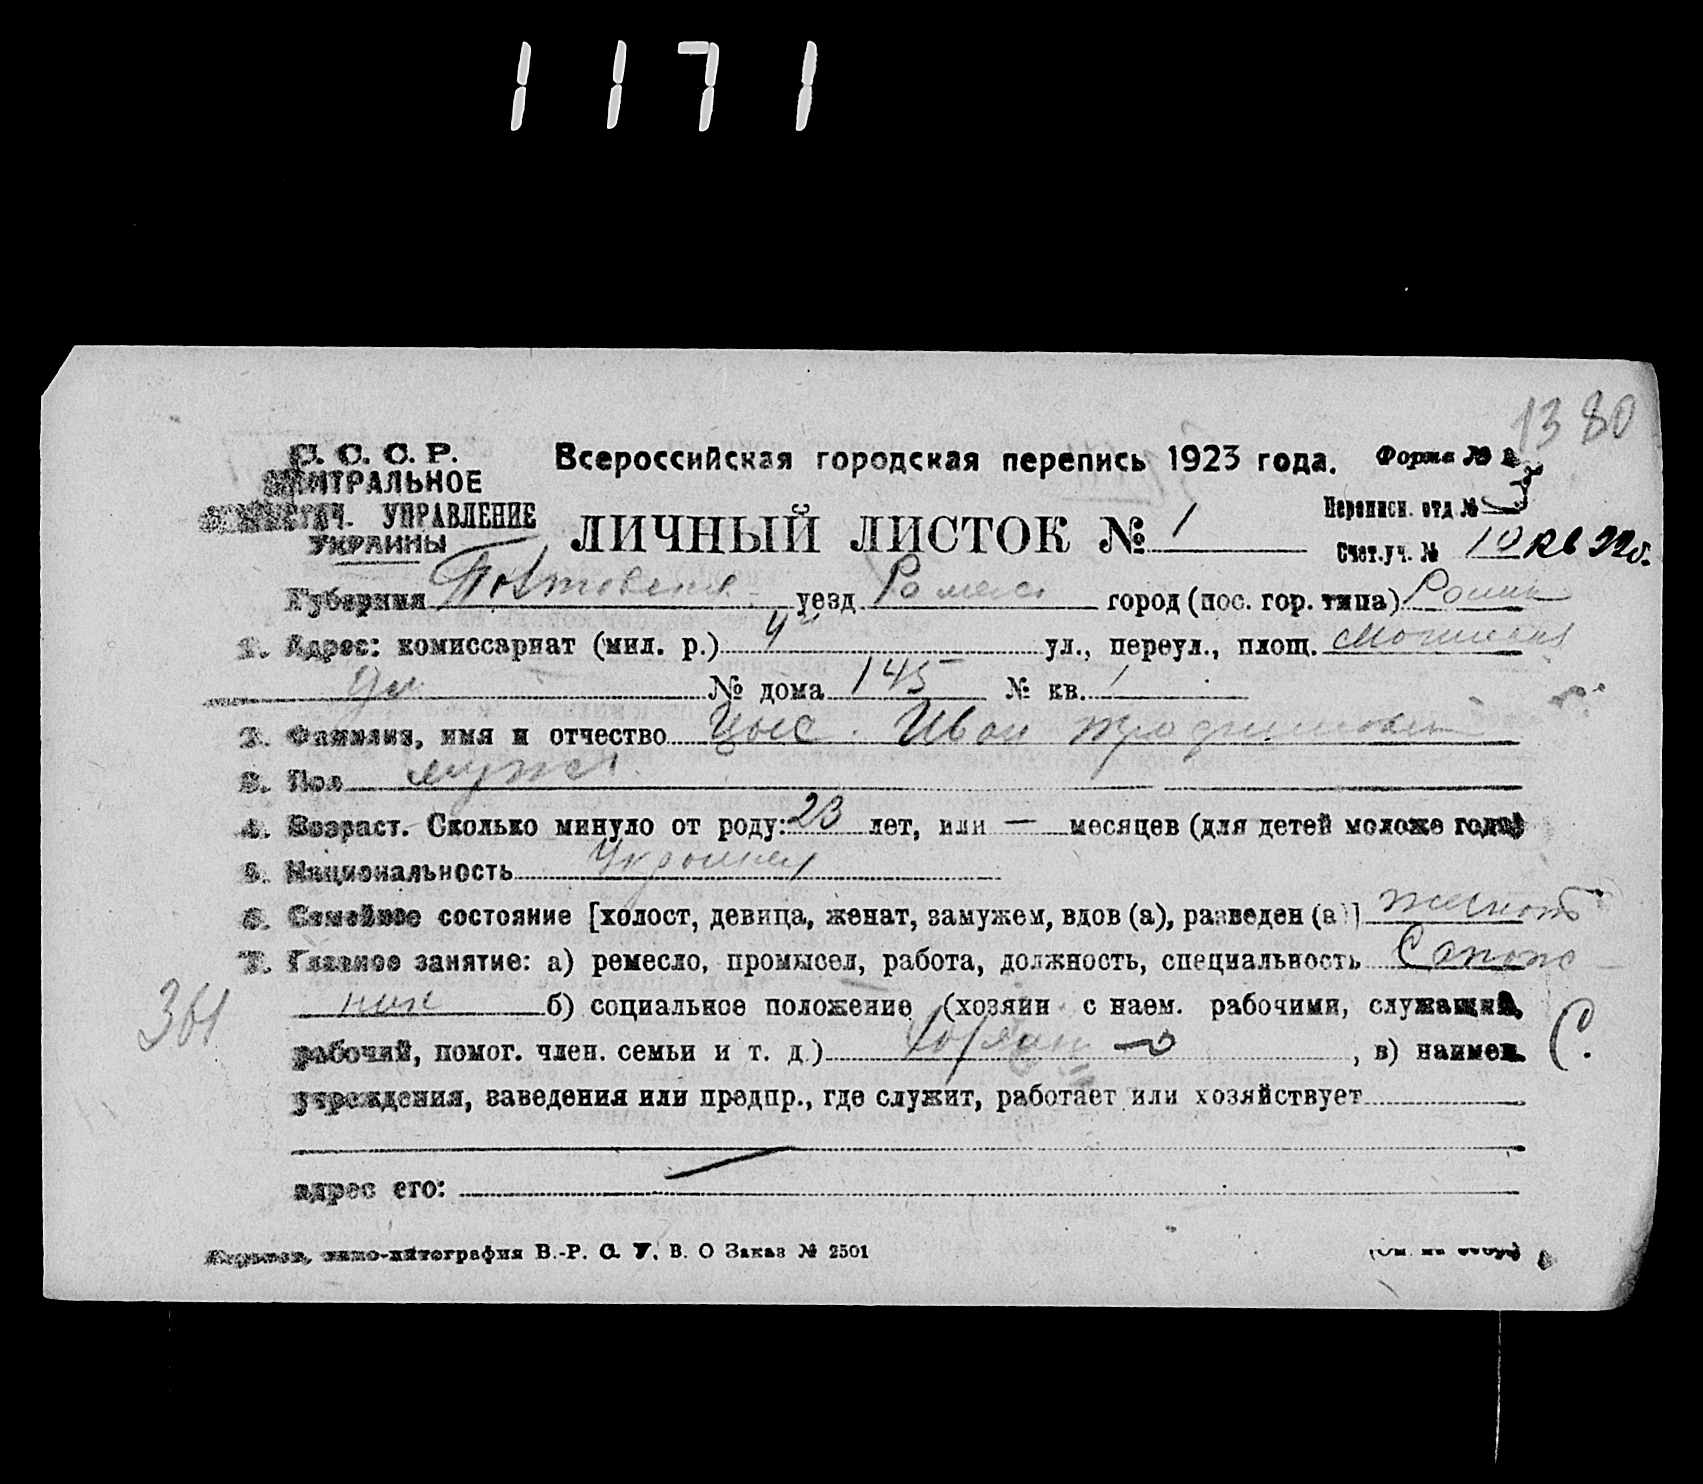 1171
1380
С. С. С. Р.
ЦЕНТРАЛЬНОЕ
СТАТИСТИЧ. УПРАВЛЕНИЕ
УКРАИНЫ
Всероссийская городская перепись 1923 года.
Форма №
ЛИЧНЫЙ ЛИСТОК № 1
Переписн. отд. №
Счет.уч. № 10
Губерния Полтовская уезд Ромен город (пос. гор. типа) Ромны
1. Адрес: комиссариат (мил. р.) 4 ул., переул., площ.
ул № дома 145 № кв. 1
2. Фамилия, имя и отчество Иван
3. Пол мужс
4. Возраст. Сколько минуло от роду: 23 лет, или — месяцев (для детей моложе года)
5. Национальность Украинец
6. Семейное состояние [холост, девица, женат, замужем, вдов (а), разведен (а)] женат
7. Главное занятие: а) ремесло, промысел, работа, должность, специальность Сапож-
361
ник б) социальное положение (хозяин с наем. рабочими, служащий,
рабочий, помог. член. семьи и т. д.) , в) наимен.
С.
учреждения, заведения или предпр., где служит, работает или хозяйствует
адрес его:
типо-литография В.-Р. С. У. В. О Заказ № 2501
(См. на обор.)